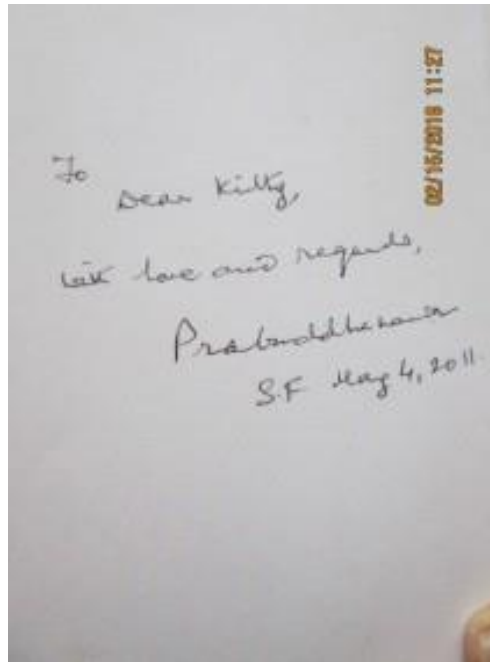 To
Dear Kitty,
with love and regards,
Prabuddhananda
S.F May 4, 2011.
02/15/2018 11:27